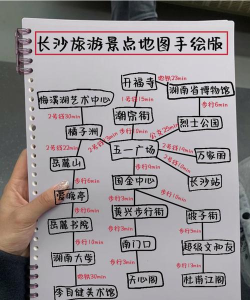 长沙旅游景点地图手绘版
开福寺
地铁23min
湖南省博物馆
梅溪湖艺术中心
1号线19min
步行13min
潮宗街
烈士公园
2号线30min
橘子洲
步行10min
公交25min
2号线13min
五一广场
万家丽
2号线22min
岳麓山
国金中心
长沙站
步行6min
步行3min
爱晚亭
黄兴步行街
坡子街
步行6min
岳麓书院
步行3min
南门口
超级文和友
步行10min
湖南大学
步行13min
天心阁
杜甫江阁
地铁30min
李自健美术馆